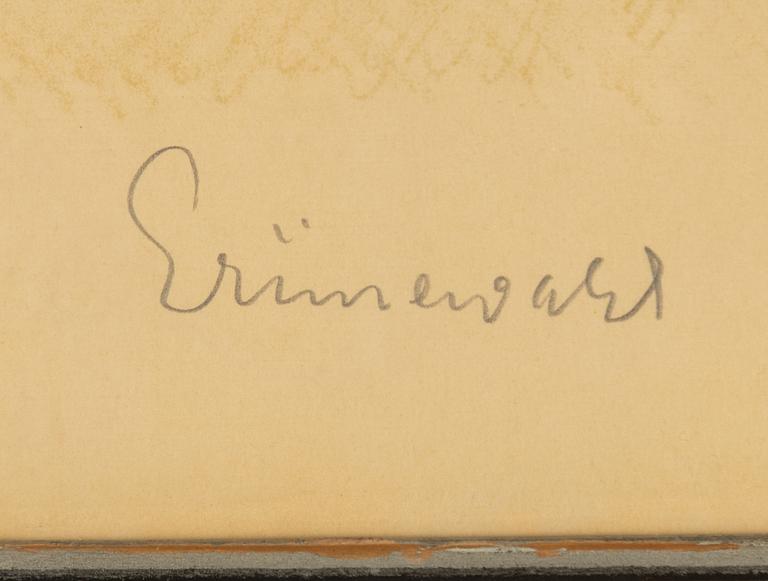 Grünewald